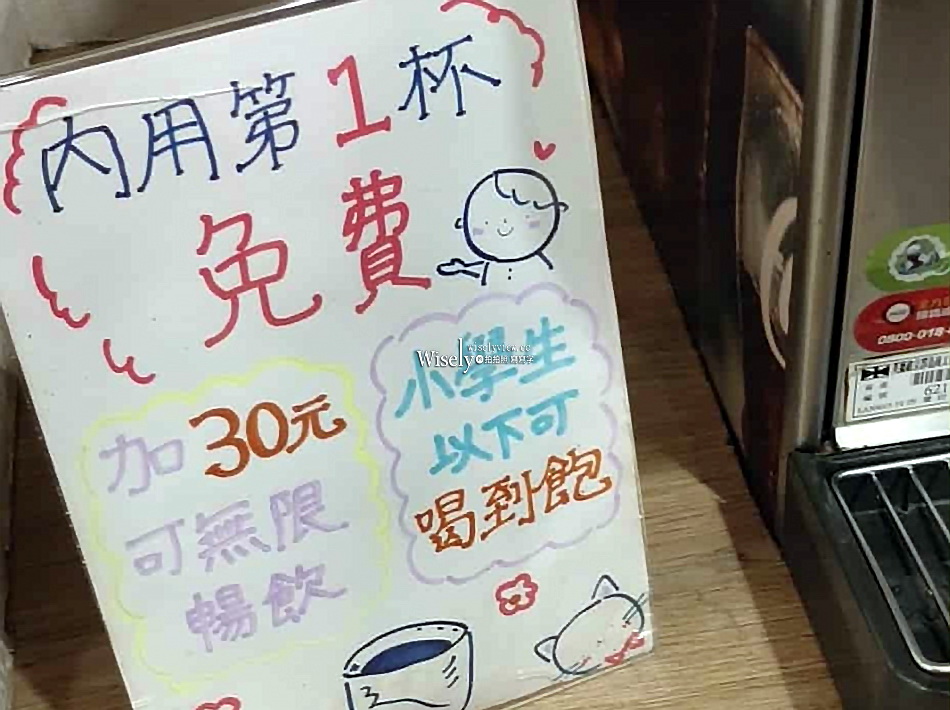 內用第1杯
免費
加30元
可無限
暢飲
小學生
以下可
喝到飽
wiselyview.cc
Wisely
拍拍照寫寫字
0800-018-